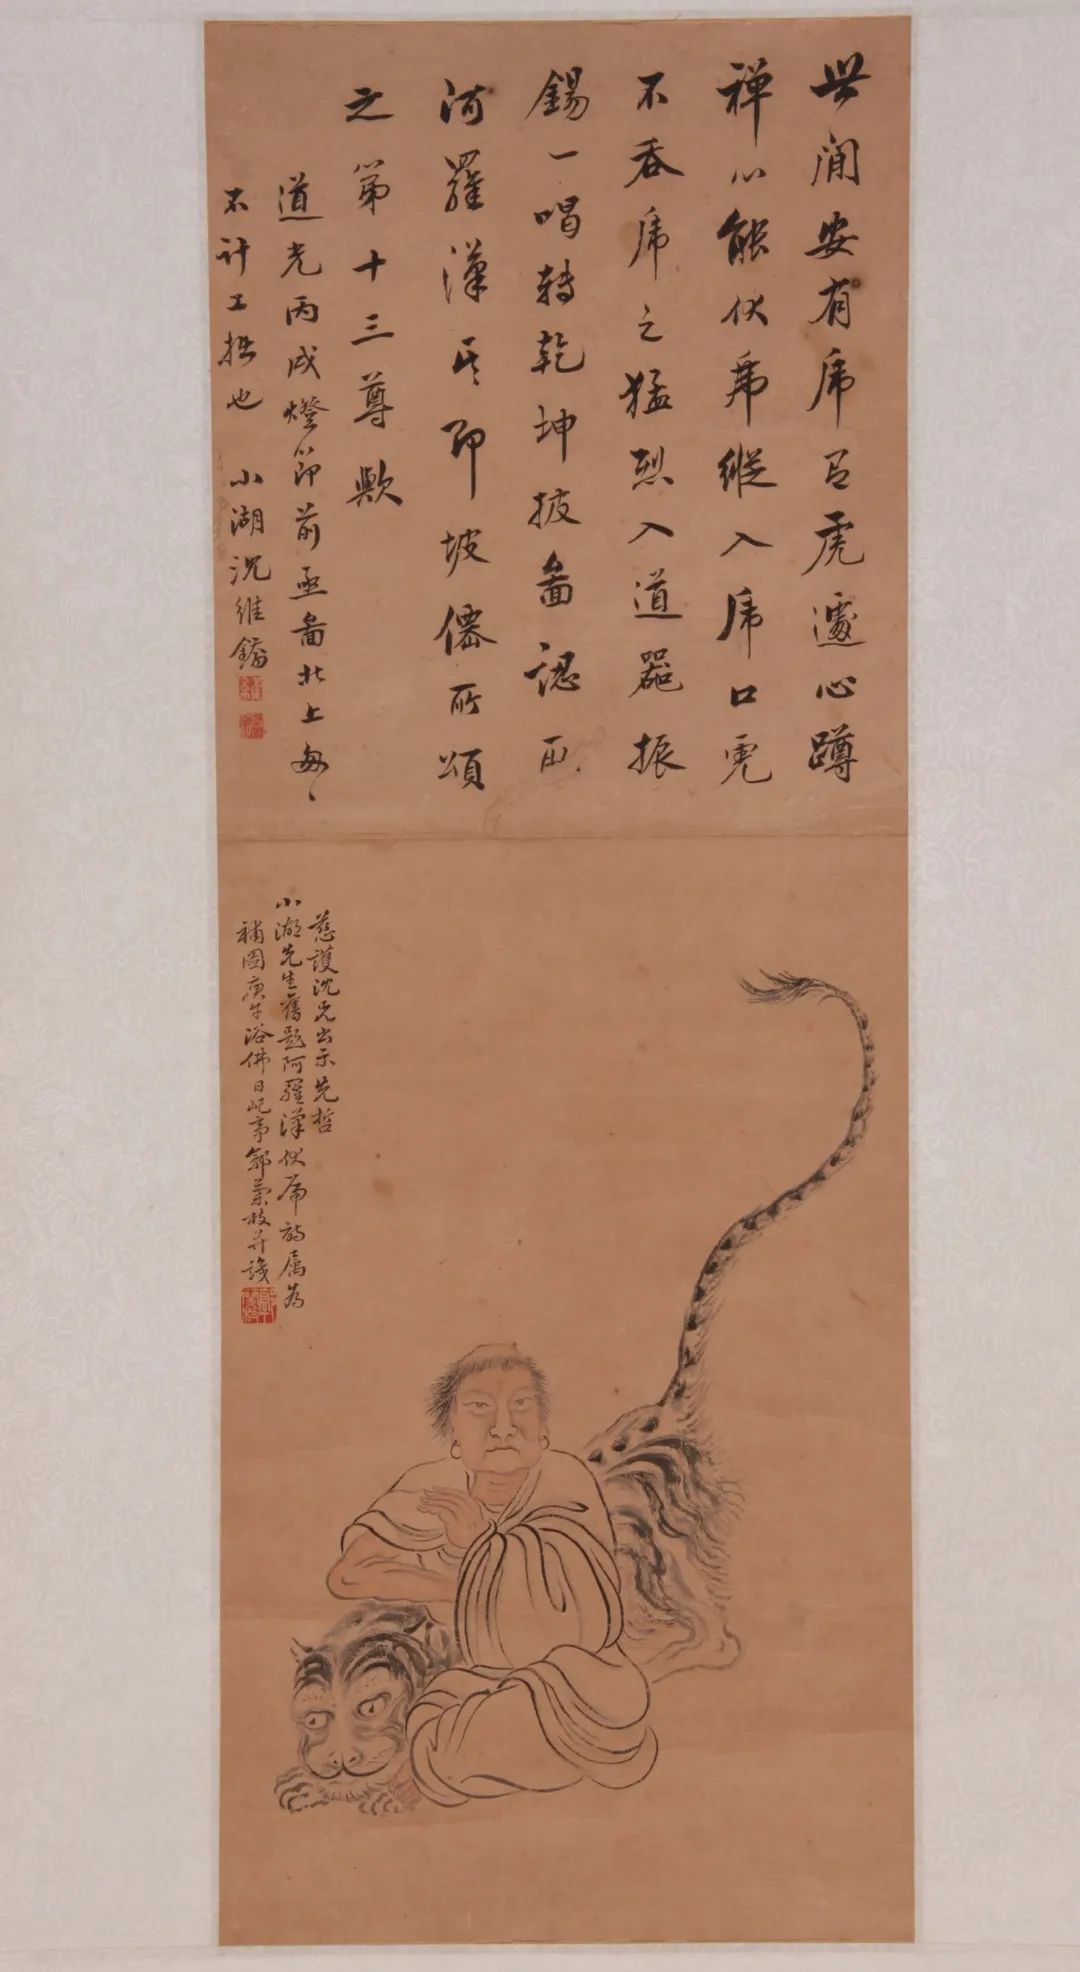 世間安有虎召虎還心蹲
禪心能伏虎縱入虎口虎
不吞虎之猛烈入道器振
錫一唱轉乾坤披圖認取
阿羅漢其即坡僊所頌
之第十三尊歟
道光丙戌燈節前亟圖北上匆匆
不計工拙也 小湖沈維鐈
慈護沈兄出示先哲
小湖先生舊題阿羅漢伏虎詩屬為
補圖庚午浴佛日屺亭郭蘭枝并識